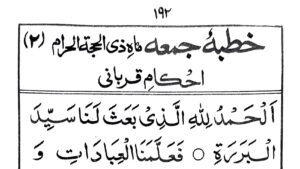 ۱۹۲
خطبۂ جمعہ ماہ ذی الحجۃ الحرام (۲)
احکام قربانی
اَلْحَمْدُ لِلّٰهِ الَّذِیْ بَعَثَ لَنَا سَیِّدَ
الْبَرَرَةِ ○ فَعَلَّمَنَا الْعِبَادَاتِ وَ